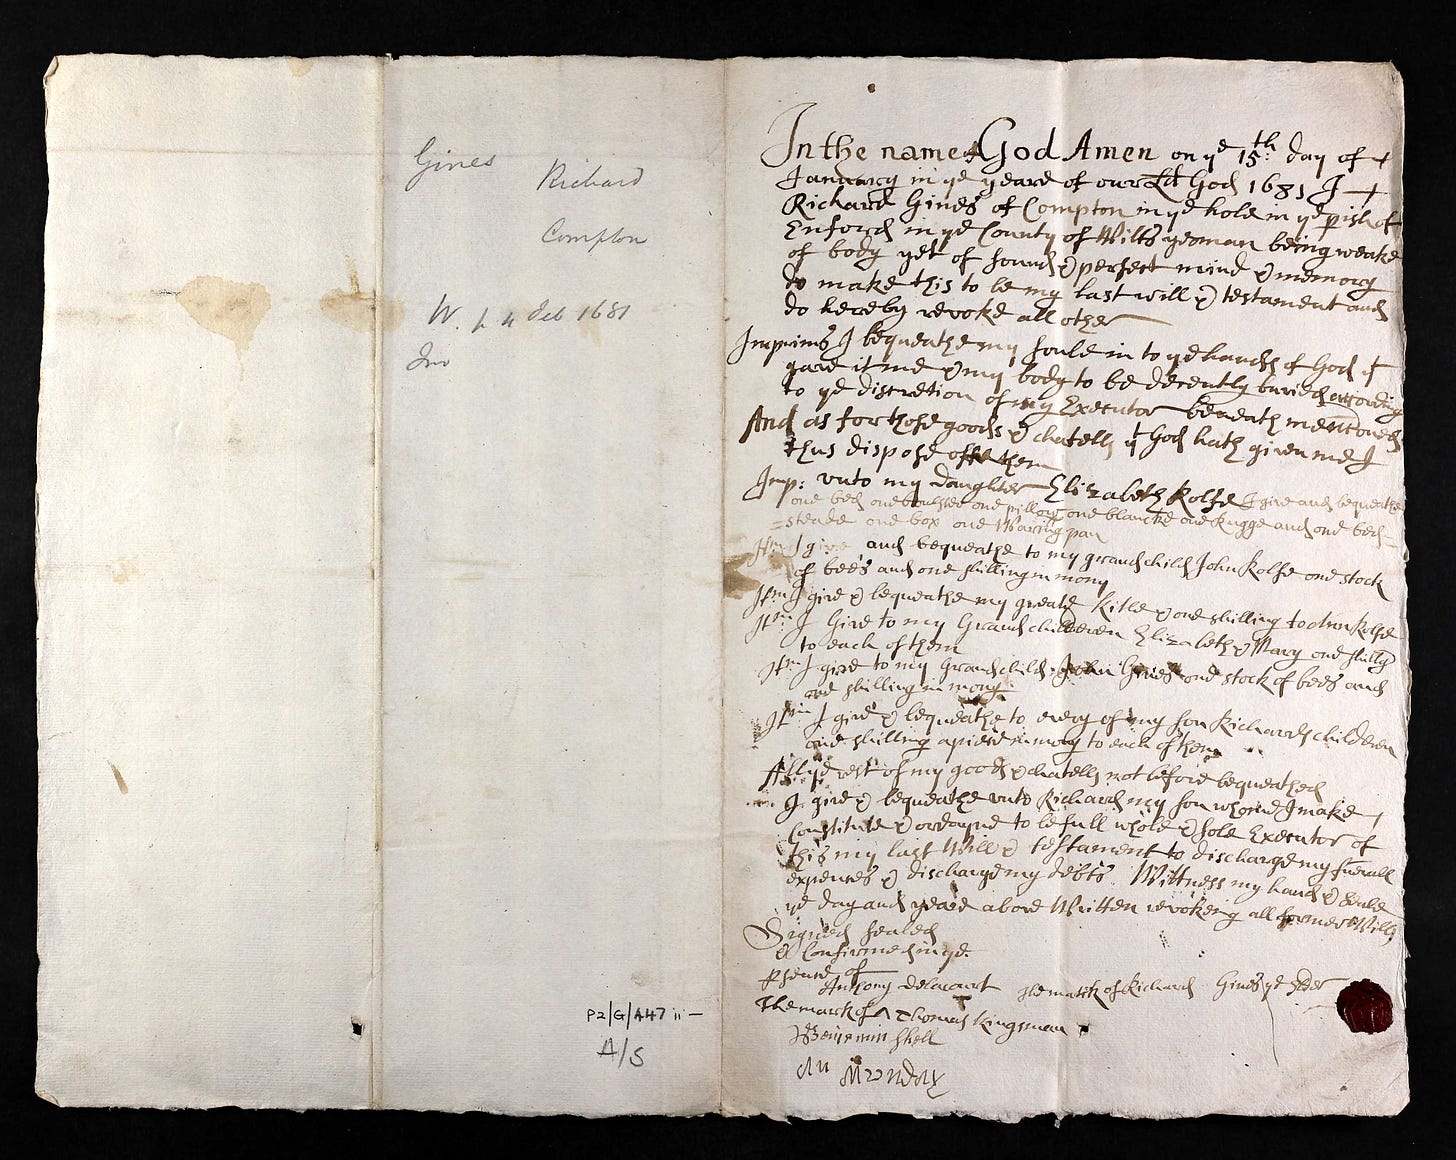 Gines
Richard
Compton
W. p 4 Feb 1681
Inv
P2/G/A47 ii –
A/S
In the name of God Amen on ye 15th: day of
January in ye yeare of our Ld God 1681 I
Richard Gines of Compton in ye hole in ye pish of
Enford in ye County of Wilts yeoman being weake
of body yet of sound & perfect mind & memory
do make this to be my last will & testament and
do hereby revoke all other
Imprimis I bequeathe my soule in to ye hands of God yt
gave it me & my body to be decently buried according
to ye discretion of my Executor beneath mentioned
And as for those goods & chatells yt God hath given me I
thus dispose of them
Imp: unto my daughter Elizabeth Rolfe I give and bequeathe
one bed one boulster one pillow one blancke one Rugge and one bed-
=steade one box one Warring pan
Itm I give and bequeathe to my grandchild John Rolfe one stock
of bees and one shilling in mony
Itm I give & bequeathe my greate Kitle & one shilling to Rolfe
Itm I Give to my Grandchilderen Elizabeth & Mary one shilling
to each of them
Itm I give to my Grandchild John Gines one stock of bees and
one shilling in mony
Itm I give & bequeathe to every of my son Richards childeren
one shilling apiese in mony to each of them
All ye rest of my goods & chatells not before bequeathed
I give & bequeathe unto Richard my son whome I make
Constitute & ordayne to be full whole & sole Executor of
this my last Will & testament to discharge my funerall
expenses & discharge my debts Wittness my hand & seale
ye day and yeare above Written revoking all former Wills
Signed sealed
& Confirmed in ye
psence of
Anthony Delacourt The mark of Richard Gines ye Elder
The mark of Thomas Kingsman
Benjemin Shell
An Munday